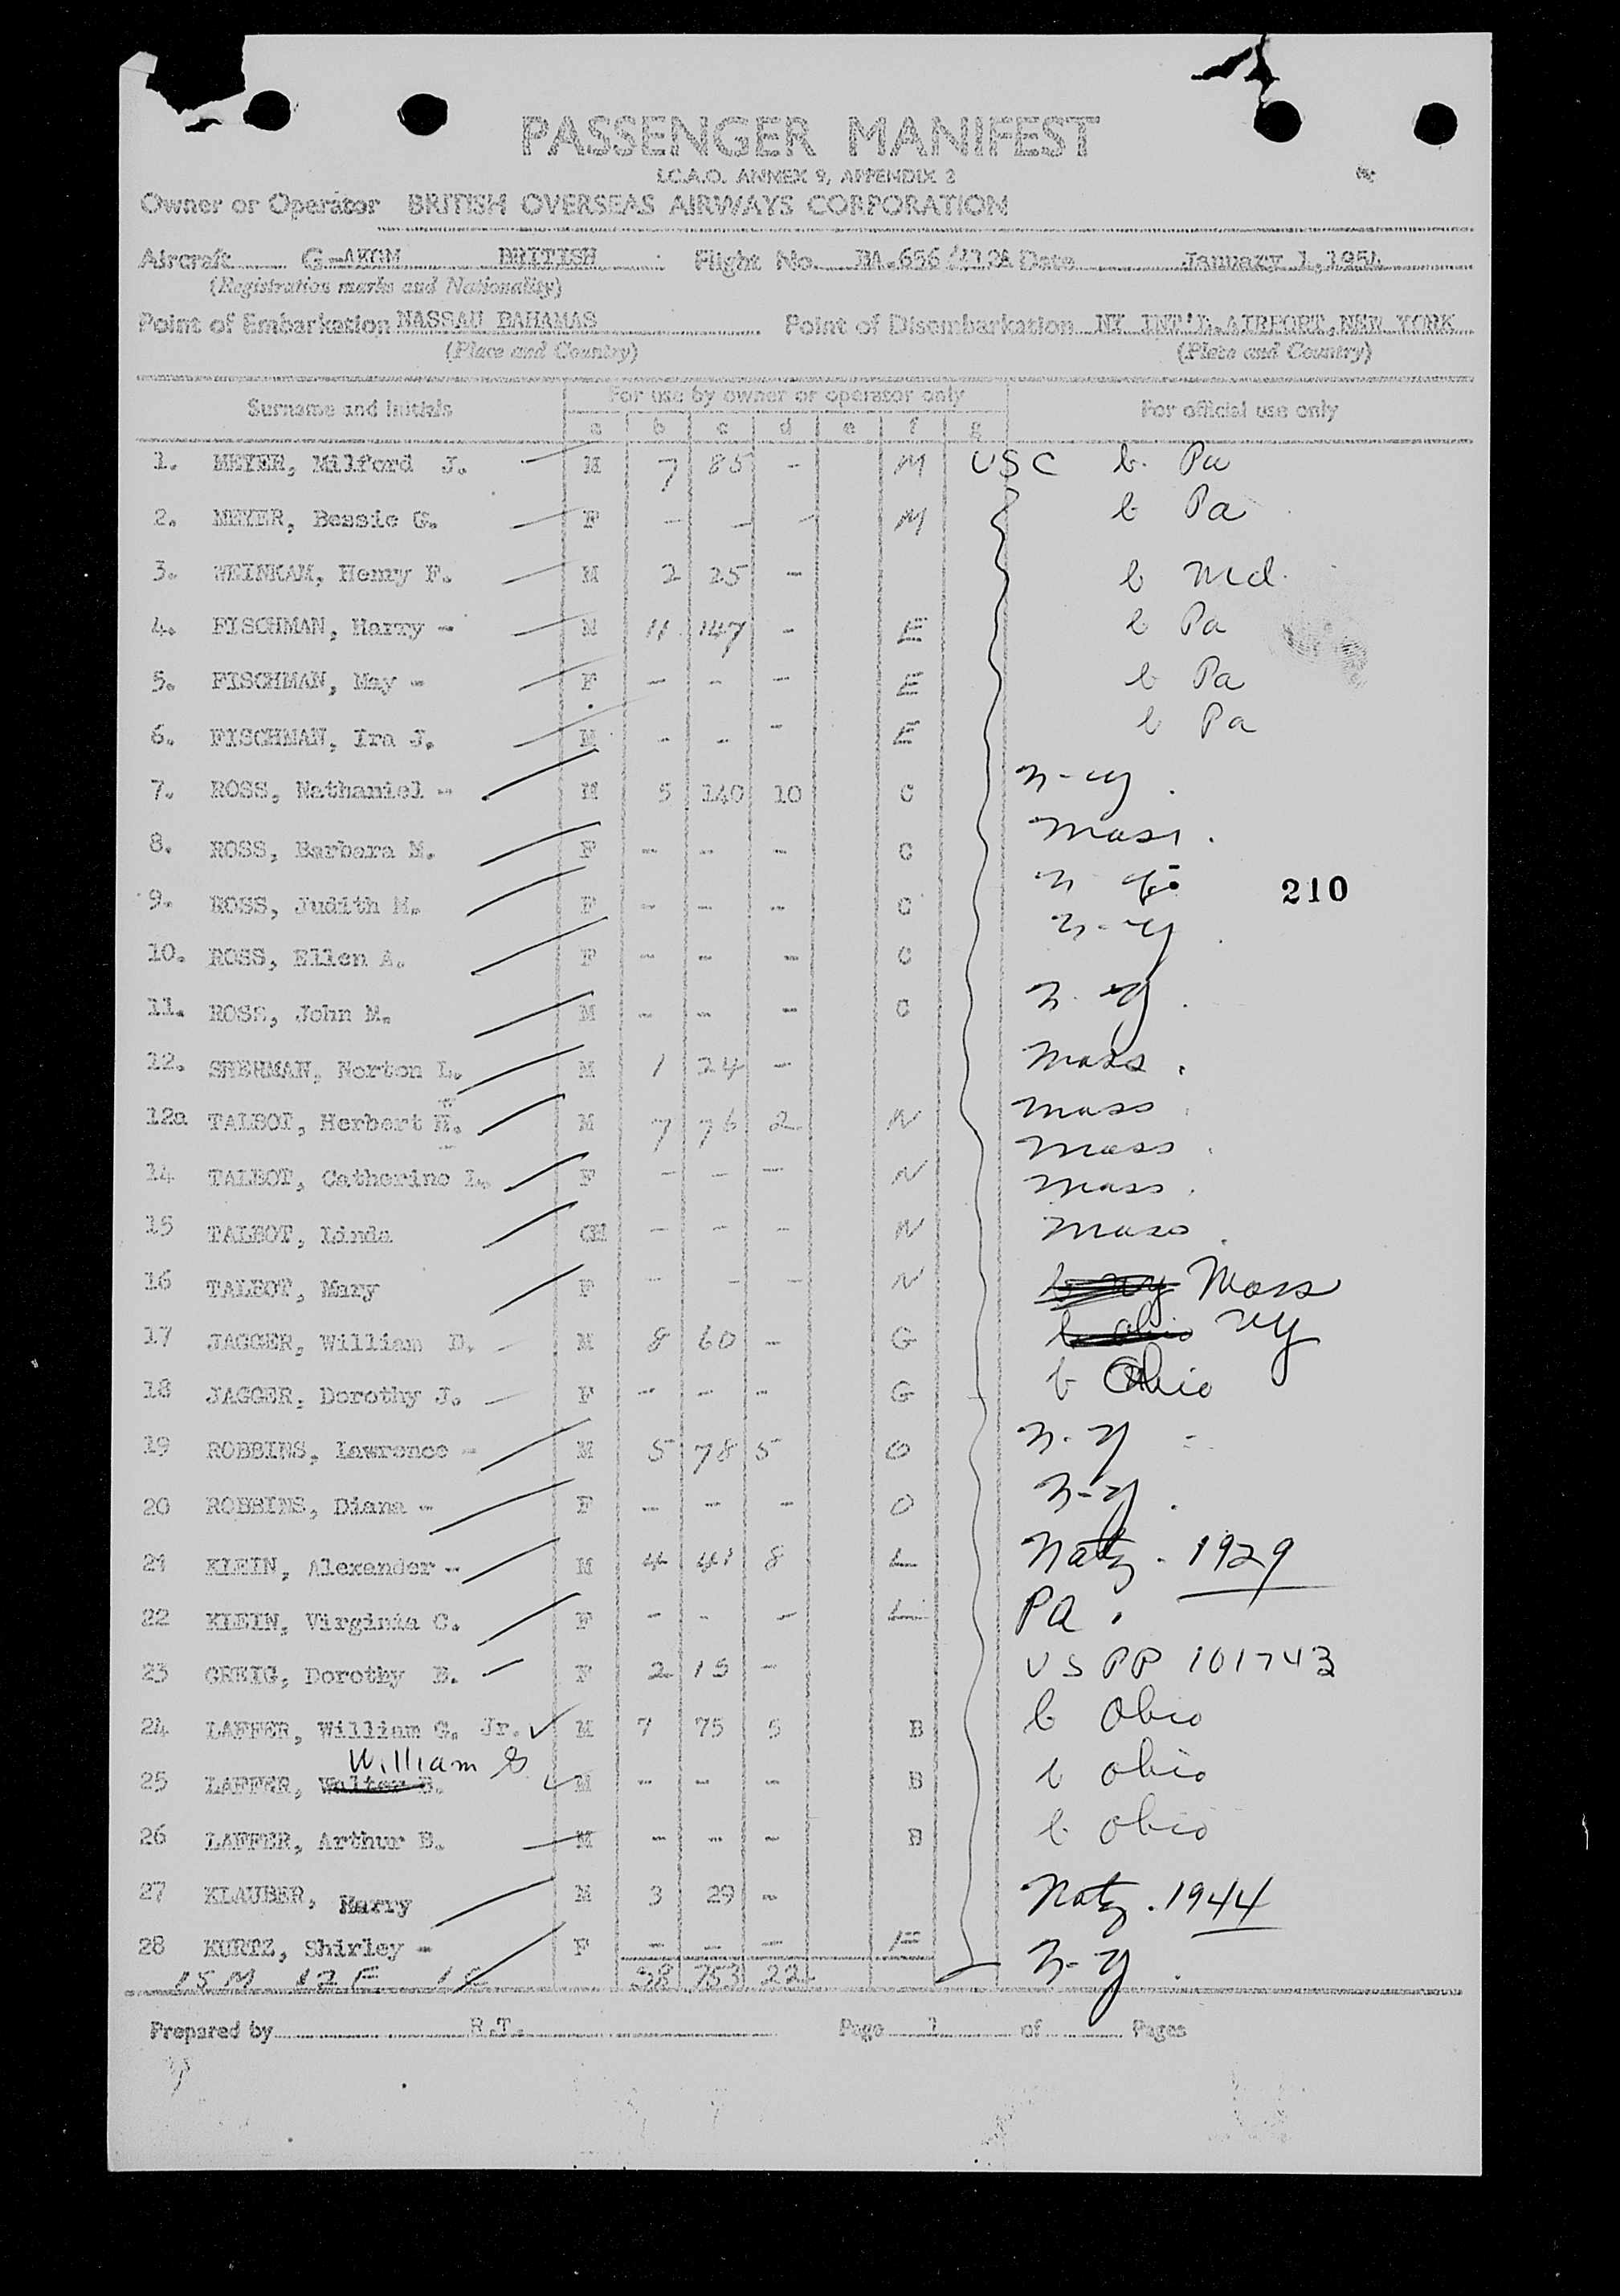 PASSENGER MANIFEST
I.C.A.O. ANNEX 9, APPENDIX 3
Owner or Operator BRITISH OVERSEAS AIRWAYS CORPORATION
Aircraft G-AKGM BRITISH Flight No. BA.656/ Date January 1, 1954
(Registration marks and Nationality)
Point of Embarkation NASSAU BAHAMAS Point of Disembarkation NY INT'L.AIRPORT,NEW YORK
(Place and Country) (Place and Country)
Surname and Initials For use by owner or operator only For official use only
a b c d e f g
1. MEYER, Milford J. M 7 85 - M USC b. Pa
2. MEYER, Bessie G. F - - - M b Pa
3. WEINKAM, Henry F. M 2 25 - b Md.
4. FISCHMAN, Harry - M 11 147 - E b Pa
5. FISCHMAN, May - F - - - E b Pa
6. FISCHMAN, Ira J. M - - - E b Pa
7. ROSS, Nathaniel - M 5 140 10 C N-Y.
8. ROSS, Barbara M. F - - - C Mass.
9. ROSS, Judith M. F - - - C N Y. 210
10. ROSS, Ellen A. F - - - C N-Y.
11. ROSS, John M. M - - - C N.Y.
12. SHERMAN, Norton L. M 1 24 - Mass.
12a TALBOT, Herbert H. M 7 76 2 N Mass.
Mass.
14 TALBOT, Catherine L. F - - - N Mass.
15 TALBOT, Linda CH - - - N Mass.
16 TALBOT, Mary F - - - N b NY Mass
17 JAGGER, William D. M 8 60 - G b Ohio NY
18 JAGGER, Dorothy J. F - - - G b Ohio
19 ROBBINS, Lawrence - M 5 78 5 O N.Y -
20 ROBBINS, Diana - F - - - O N-Y.
21 KLEIN, Alexander - M 4 41 8 L Natz. 1929
22 KLEIN, Virginia C. F - - - L PA.
23 GREIG, Dorothy B. F 2 15 - US PP 101743
24 LAFFER, William G. Jr. M 7 75 5 B b Ohio
William G
25 LAFFER, Walter B. M - - - B b Ohio
26 LAFFER, Arthur B. M - - - B b Ohio
27 KLAUBER, Harry M 3 29 - Natz. 1944
28 KURTZ, Shirley - F - - - E N-Y.
15 M 12 F 1 C 58 753 22
Prepared by R.T. Page 1 of Pages